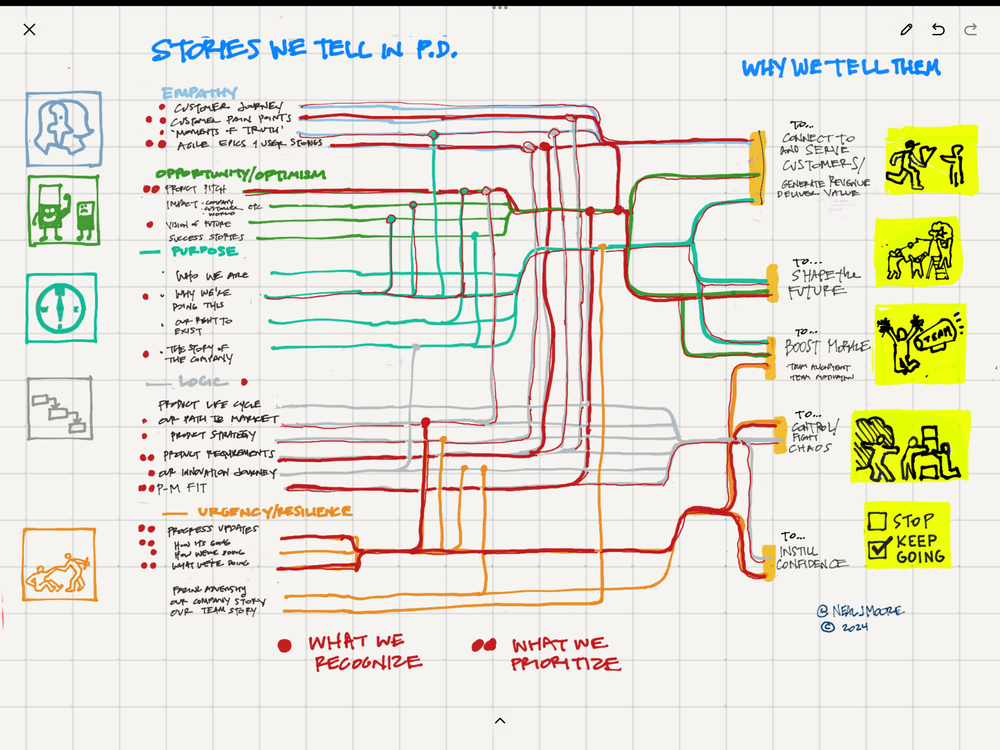 STORIES WE TELL IN P.D.
WHY WE TELL THEM
EMPATHY
• CUSTOMER JOURNEY
• CUSTOMER PAIN POINTS
• 'MOMENTS OF TRUTH'
• AGILE EPICS & USER STORIES
OPPORTUNITY/OPTIMISM
PRODUCT PITCH
IMPACT - COMPANY
CUSTOMER ETC
WORLD
VISION OF FUTURE
SUCCESS STORIES
— PURPOSE
• WHO WE ARE
• WHY WE'RE
DOING THIS
• OUR RIGHT TO
EXIST
• THE STORY OF
THE COMPANY
— LOGIC
PRODUCT LIFE CYCLE
OUR PATH TO MARKET
PRODUCT STRATEGY
PRODUCT REQUIREMENTS
OUR INNOVATION JOURNEY
P-M FIT
— URGENCY/RESILIENCE
PROGRESS UPDATES
HOW ITS GOING
HOW WE'RE DOING
WHAT WE'RE DOING
FACING ADVERSITY
OUR COMPANY STORY
OUR TEAM STORY
TO...
CONNECT TO
AND SERVE
CUSTOMERS/
GENERATE REVENUE
DELIVER VALUE
TO...
SHAPE the
FUTURE
TO...
BOOST MORALE
TEAM ALIGNMENT
TEAM MOTIVATION
TEAM
TO...
CONTROL/
FIGHT
CHAOS
TO...
INSTILL
CONFIDENCE
STOP
KEEP
GOING
@NEALJMOORE
© 2024
WHAT WE
RECOGNIZE
WHAT WE
PRIORITIZE